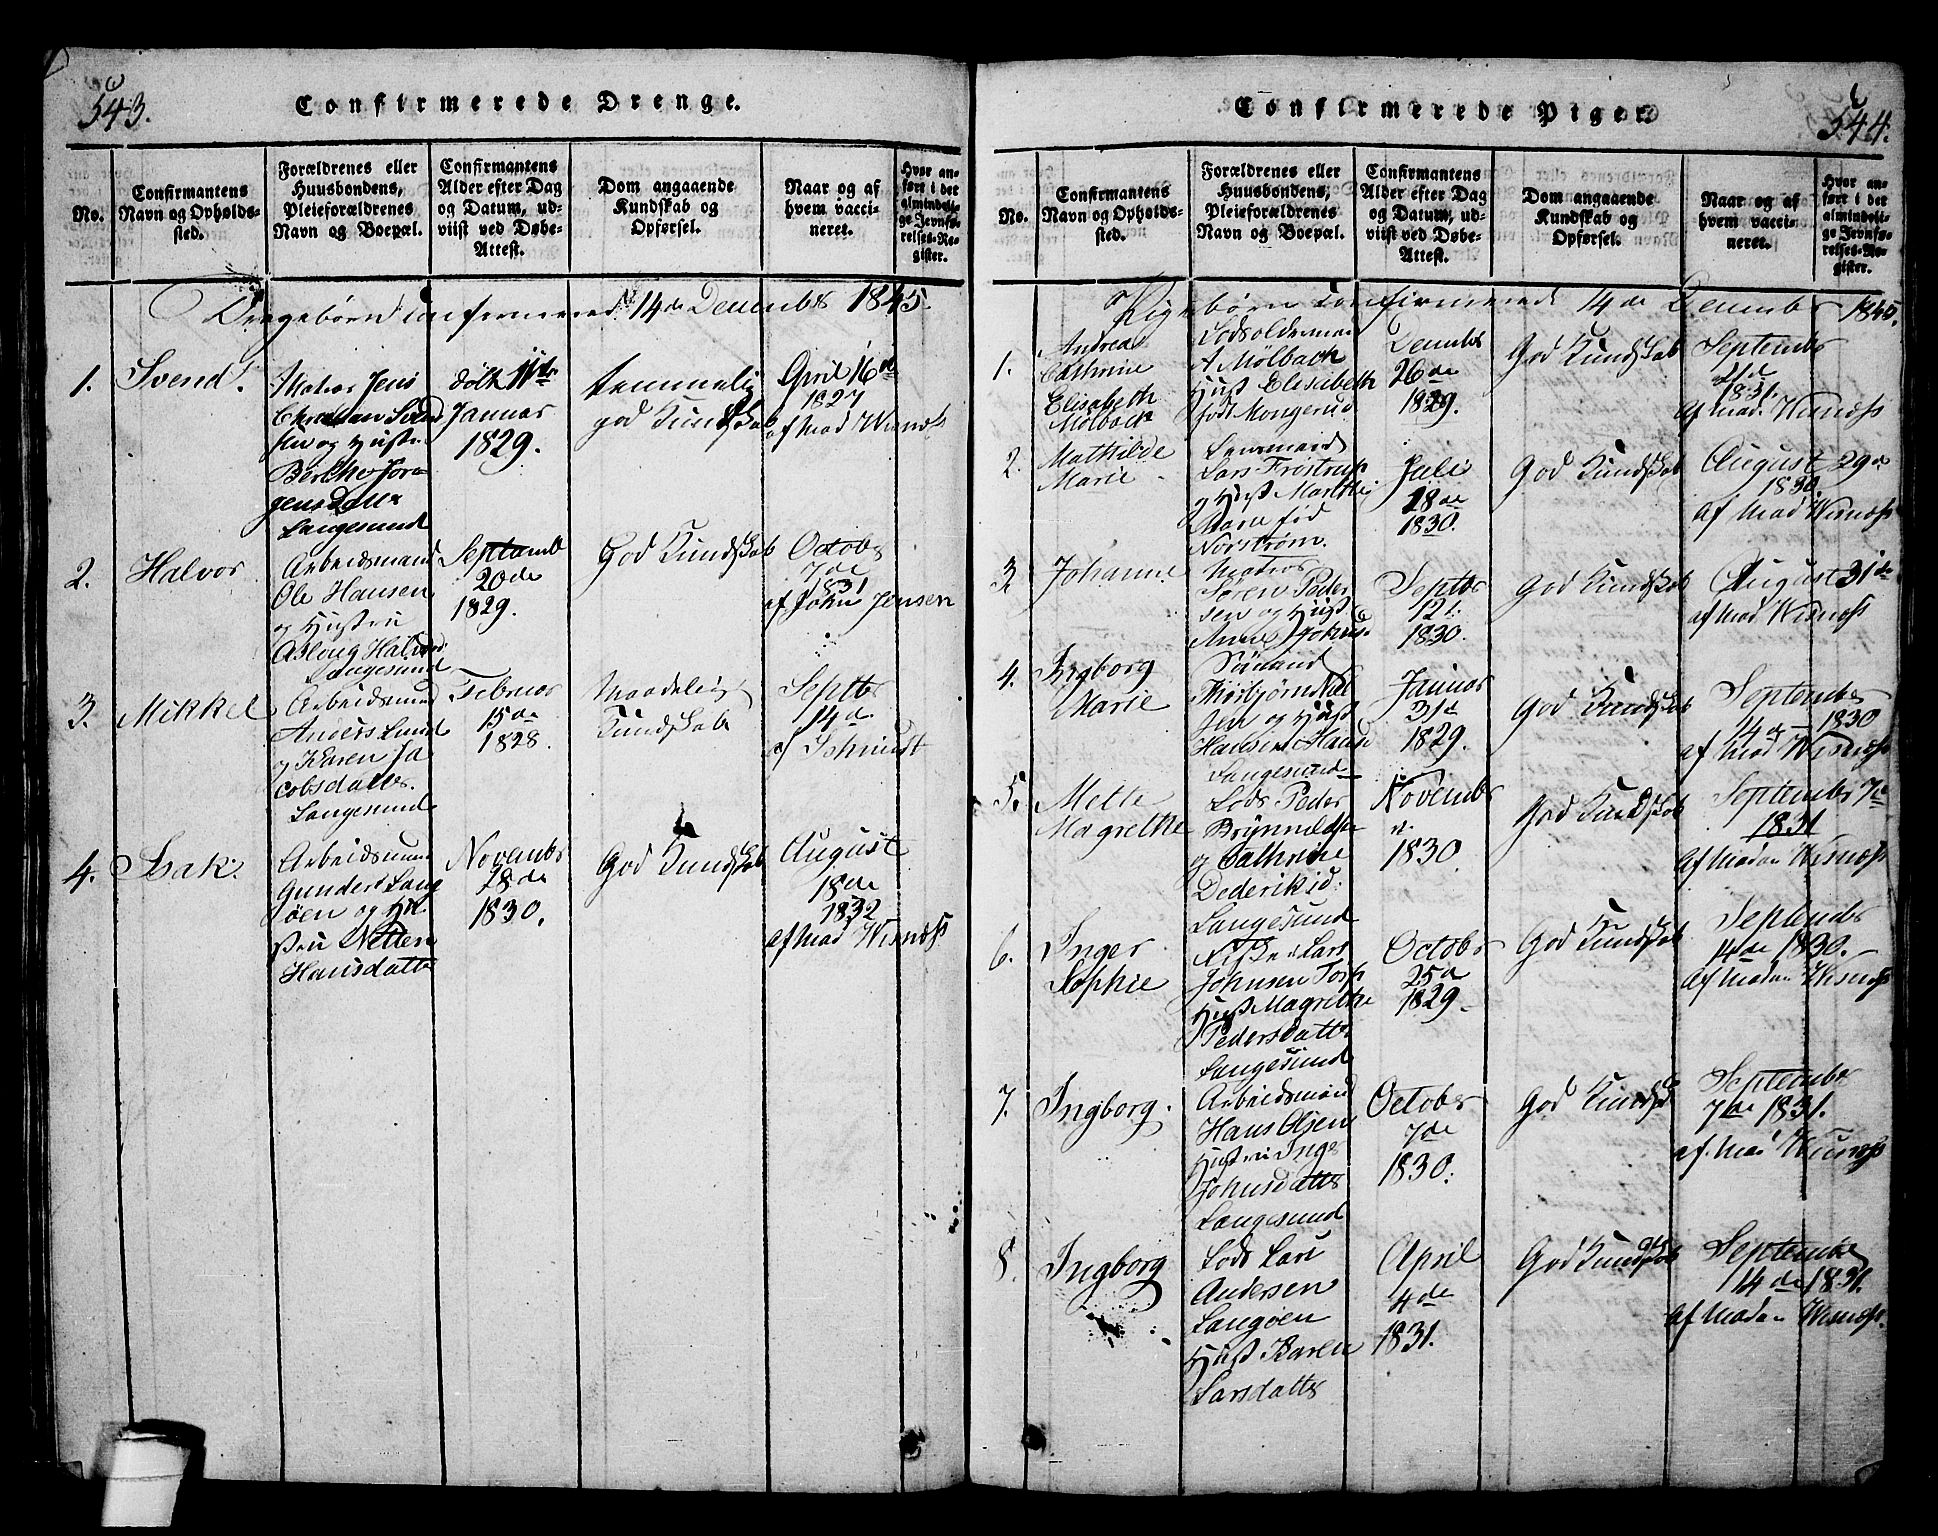 543.
Confirmerede Drenge.
No.
Confirmantens Navn og Opholds-sted.
Forældrenes eller Huusbondens, Pleieforældrenes Navn og Boepæl.
Confirmantens Alder efter Dag og Datum, ud-viist ved Døbe-Attest.
Dom angaaende Kundskab og Opførsel.
Naar og af hvem vacci-neret.
Hvor an-ført i det almindeli-ge Jevnfø-relses-Re-gister.
Drengebørn confirmered 14de December 1845.
1.
Svend
Matros Jens
Christian
og Hustru
Berthe Jør
gensdatter
Langesund
døbt 11te
Januar
1829.
temmelig
god Kundskab
April 16de
1827
af Mad Wisnæss
2.
Halvor
Arbeidsmand
Ole Hansen
og Hustru
Asloug Halvors
Langesund
Septemb
20de
1829.
God Kundskab
Octobr
7de
1831
af John Jensen
3.
Mikkel
Arbeidsmand
Anders Lund
og Karen Ja
cobsdatter.
Langesund
Februar
15de
1828.
Maadelig
Kundskab
Septbr
14d
af Schmidt
4.
Isak.
Arbeidsmand
Gunder Lang
øen og Hu
stru
Hansdatter
Novembr
28de
1830.
God Kundskab
August
18de
1832
af Mad Wisnæss
544.
Confirmerede Piger.
No.
Confirmantens Navn og Opholds-sted.
Forældrenes eller Huusbondens, Pleieforældrenes Navn og Boepæl.
Confirmantens Alder efter Dag og Datum, ud-viist ved Døbe-Attest.
Dom angaaende Kundskab og Opførsel.
Naar og af hvem vacci-neret.
Hvor an-ført i det almindeli-ge Jevnfø-relses-Re-gister.
Pigebørn confirmered 14de December 1845.
1.
Andrea
Cathrine
Elisabeth
Mølbach
Lodsolderman
A Mølbach
Hust Elisabeth
født Mongerud
Decembr
26de
1829.
God Kundskab
September
21de
1831.
af Mad. Wisnæss
2.
Mathilde
Marie
Lars Frøstrup
og Hust Marthe
Marie fød
Norstrøm.
Juli
18de
1830.
God Kundskab
August 29de
1830
af Mad Wisnæss
3.
Johanne
Matros
Søren Peder
sen og Hust
Anne Johns
Septbr
12t
1830.
God Kundskab
August 31te
af Mad Wisnæss
4.
Ingborg
Marie
Sømand
Thorbjørn
sen og Hust
Langesund
Januar
31d
1829.
God Kundskab
September
14de 1830
af Mad Wisnæss
5.
Mette
Magrethe
Lods Peder
Brynnildsen
og Cathrine
Dederikid:
Langesund
Novembr
1830.
God Kundskab
September 7de
1831
af Madam Wisnæss
6.
Inger
Sophie
Lars
Johnsen Torp
Hust Magrethe
Pedersdatter
Langesund
Octobr
25d
1829.
God Kundskab
September
14de 1830.
af Madam Wisnæss
7.
Ingborg.
Arbeidsmand
Hans Olsen
Hustru Inge
Johnsdatter
Langesund
October
7de
1830.
God Kundskab
September
7de 1831.
af. Mad Wisnæss
8.
Ingborg
Lods Lars
Andersen
Langøen
Hust Karen
Larsdatter
April
4de
1831.
God Kundskab
September
14de 1831.
af Madam Wisnæss.